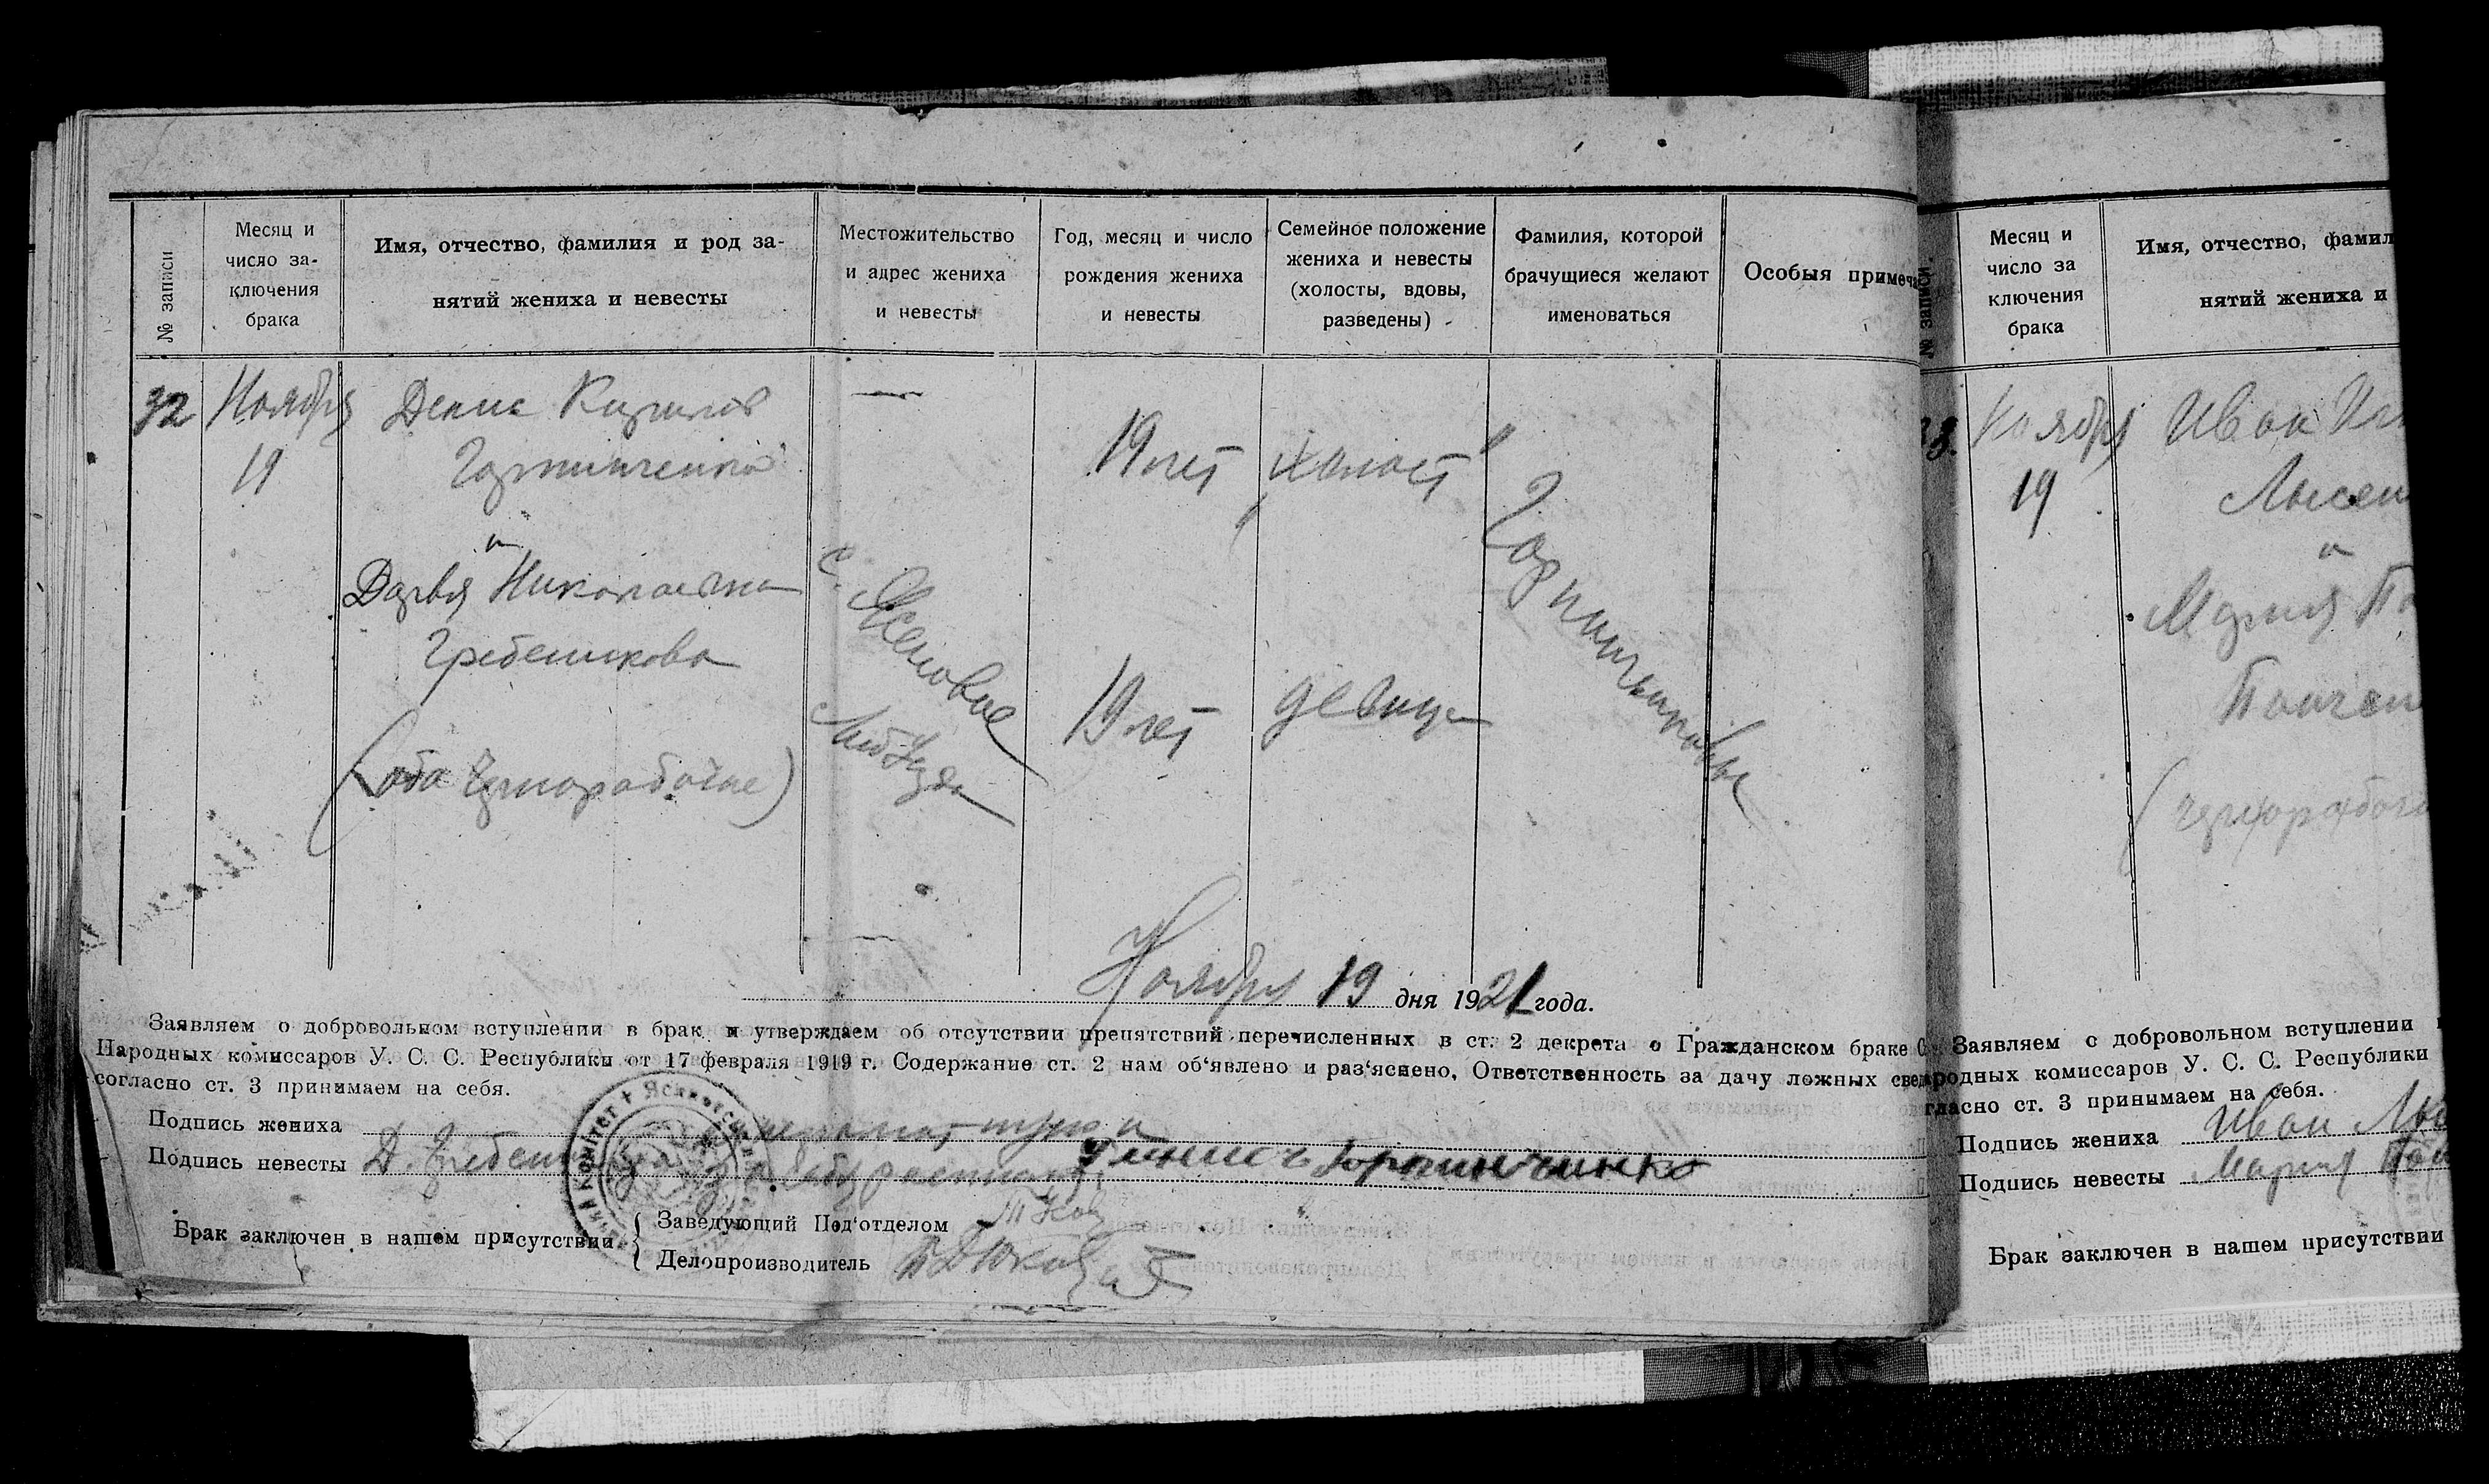 № записи
Месяц и
число за-
ключения
брака
Имя, отчество, фамилия и род за-
нятий жениха и невесты
Местожительство
и адрес жениха
и невесты
Год, месяц и число
рождения жениха
и невесты
Семейное положение
жениха и невесты
(холосты, вдовы,
разведены)
Фамилия, которой
брачущиеся желают
именоваться
Особыя примеча
32
Ноября
19
Денис Кирилов
и
Дарья Николаевна
Гребеникова
(оба чернорабочие)
с. Ясеновое
19 лет
холост
19 лет
девица
Ноября 19 дня 1921 года.
Заявляем о добровольном вступлении в брак и утверждаем об отсутствии препятствий перечисленных в ст. 2 декрета о Гражданском браке С
Народных комиссаров У. С. С. Республики от 17 февраля 1919 г. Содержание ст. 2 нам об‘явлено и раз‘яснено, Ответственность за дачу ложных свед
согласно ст. 3 принимаем на себя.
Подпись жениха
Подпись невесты Д. Гребеникова
Брак заключен в нашем присутствии
Заведующий Под‘отделом
Делопроизводитель
№ записи.
Месяц и
число за
ключения
брака
Имя, отчество, фамил
нятий жениха и
Ноября
19
Иван
Лысен
и
Мария
(чернорабочи
Заявляем о добровольном вступлении
родных комиссаров У. С. С. Республики
гласно ст. 3 принимаем на себя.
Подпись жениха Иван Лы
Подпись невесты Мария
Брак заключен в нашем присутствии